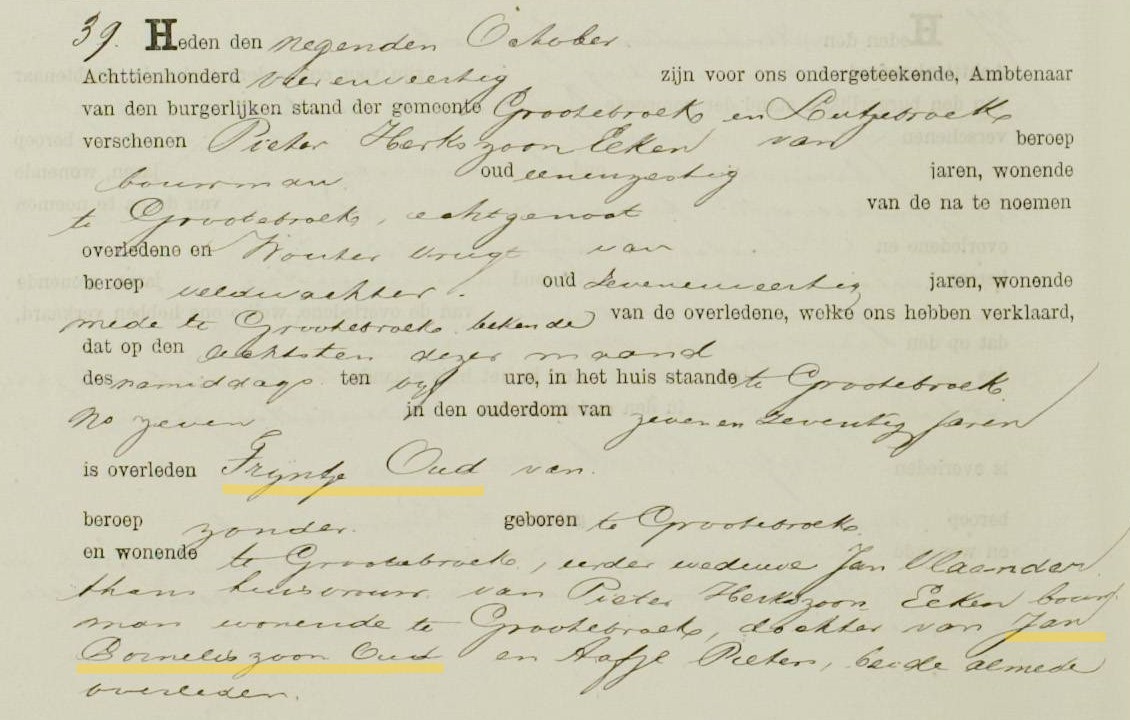 39. Heden den negenden October
Achttienhonderd vierenveertig zijn voor ons ondergeteekende, Ambtenaar
van den burgerlijken stand der gemeente Grootebroek en Lutjebroek
verschenen Pieter Herkszoon Eeken van beroep
bouwman oud eenenzestig jaren, wonende
te Grootebroek, echtgenoot van de na te noemen
overledene en Wouter Vrugt van
beroep veldwachter oud zevenenveertig jaren, wonende
mede te Grootebroek bekende van de overledene, welke ons hebben verklaard,
dat op den achtsten dezer maand
des namiddags ten vijf ure, in het huis staande te Grootebroek
No zeven in den ouderdom van zeven en zeventig jaren
is overleden Tryntje Oud van
beroep zonder geboren te Grootebroek
en wonende te Grootebroek, eerder weduwe Jan Vlaander
thans huisvrouw van Pieter Herkszoon Eeken bouw
man wonende te Grootebroek, dochter van Jan
Corneliszoon Oud en Aafje Pieters, beide almede
overleden.